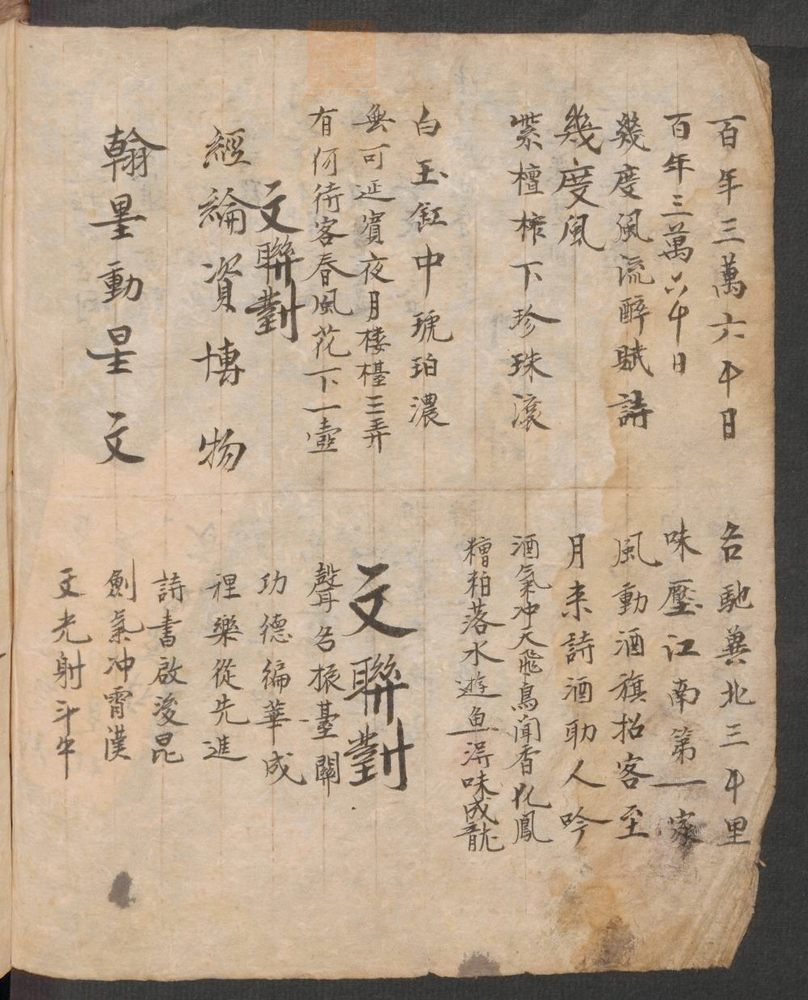 百年三萬六千日
百年三萬六千日
幾度風流醉賦詩
幾度風
紫檀榨下珍珠滾
白玉缸中琥珀濃
無可延賓夜月樓檯三弄
有何待客春風花下一壺
文聯對
經綸資博物
翰墨動星文
名馳冀北三千里
味壓江南第一家
風動酒旗招客至
月来詩酒助人吟
酒氣冲天飛鳥聞香化鳳
糟粕落水遊魚得味成龍
文聯對
聲名振臺閣
功德編華成
禮樂從先進
詩書啟後昆
劍氣冲霄漢
文光射斗牛